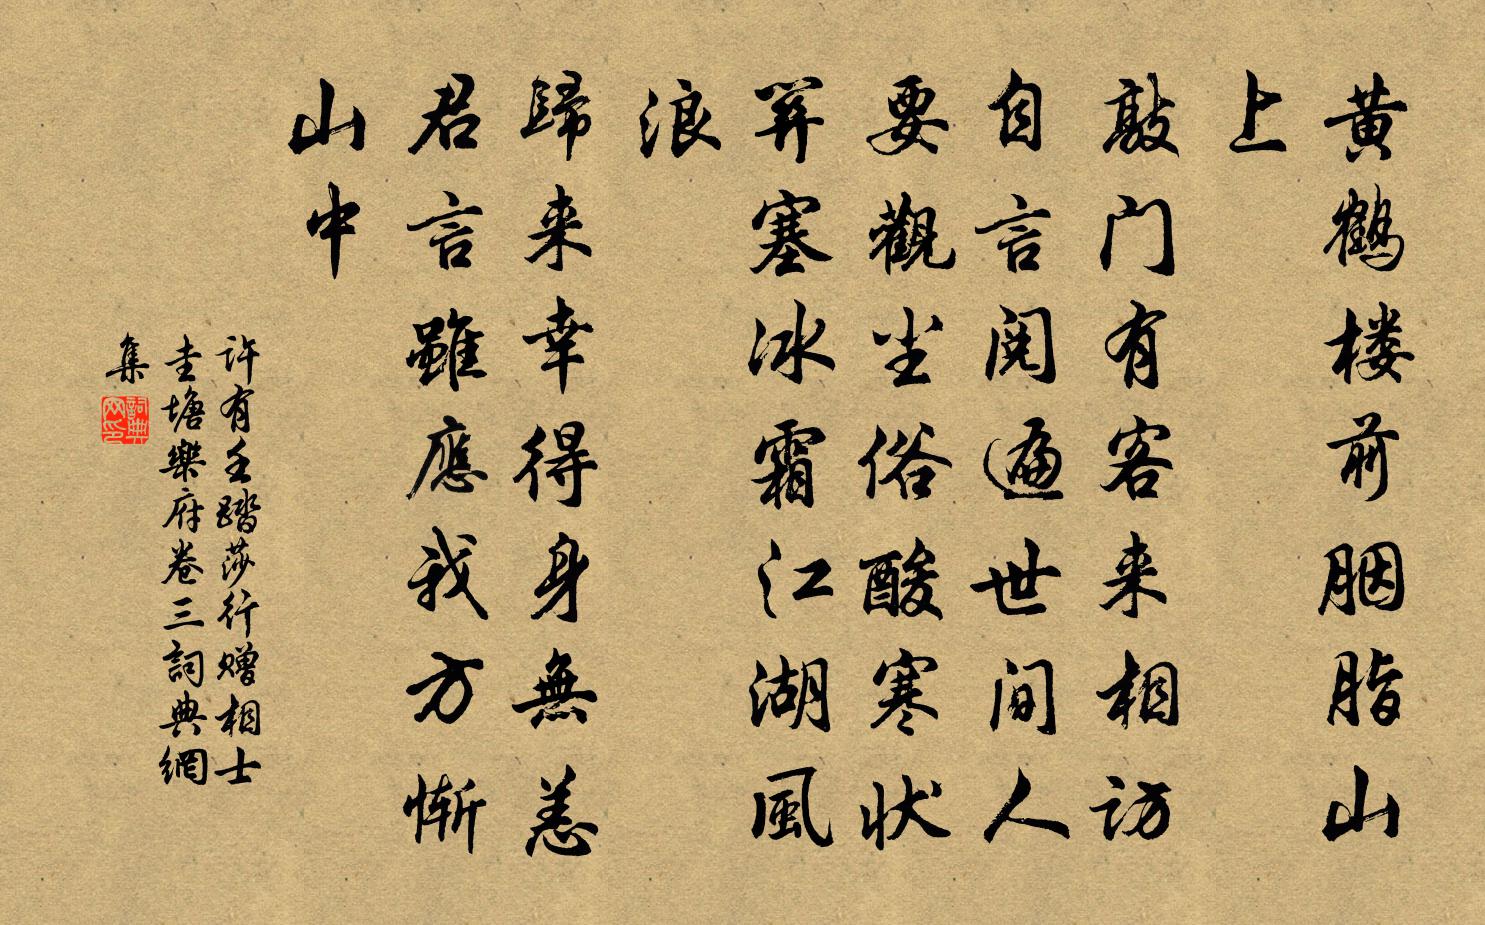 黄鹤楼前胭脂山
上
敲门有客来相访
自言阅遍世间人
要觀尘俗酸寒状
算塞冰霜江湖風
浪
歸来幸得身無恙
君言雖應我方惭
山中
许有壬踏莎行赠相士
圭塘樂府卷三詞典網
集
詞典网印